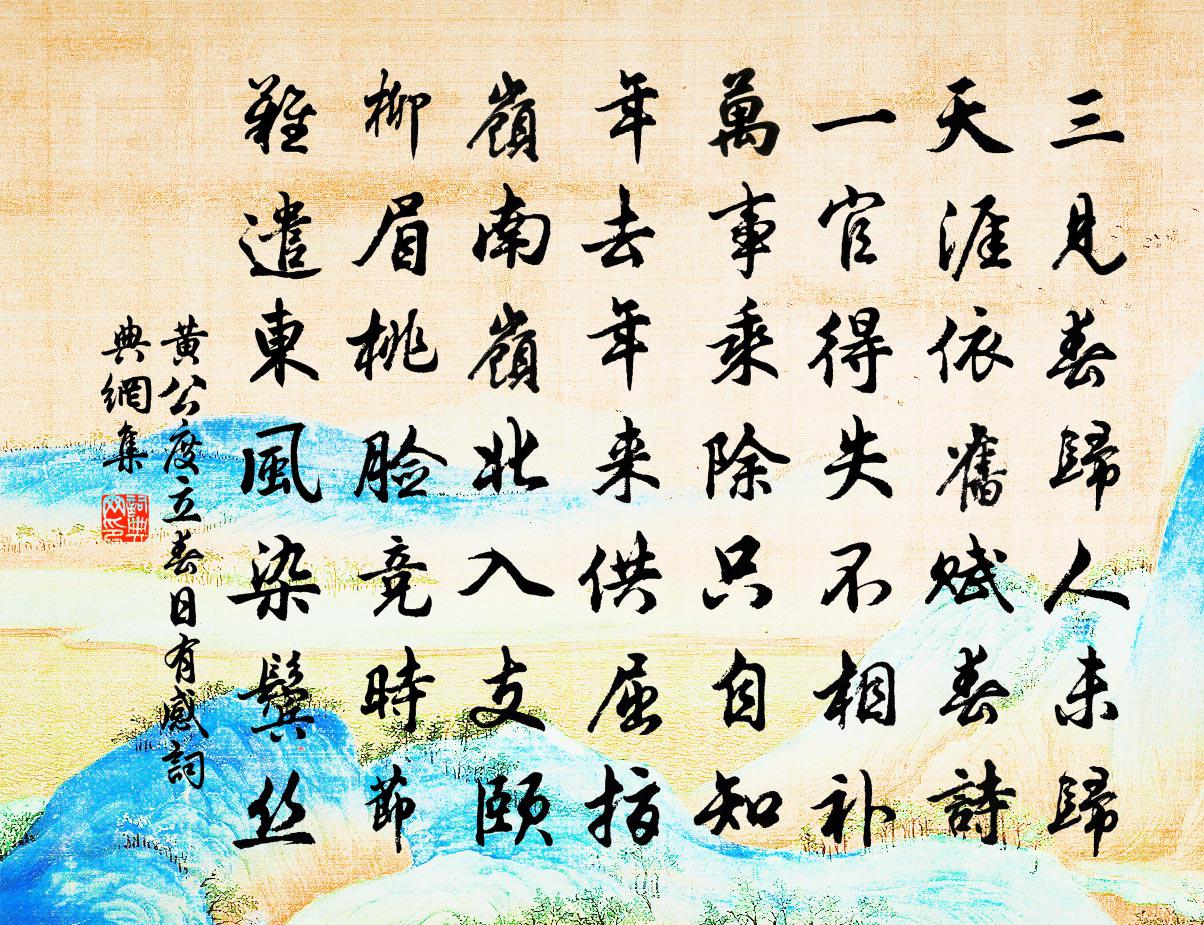 三見春歸人未歸
天涯依舊賦春詩
一官得失不相补
萬事乘除只自知
年去年来供屈指
嶺南嶺北入支頤
柳眉桃臉竞時節
難遣東風染鬓丝
黄公度立春日有感詞
典網集
詞典網印